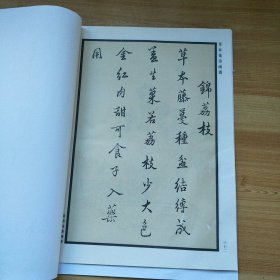 錦荔枝
草本藤蔓種盆結縛成
盖生菓若荔枝少大色
金紅肉甜可食子入藥
用